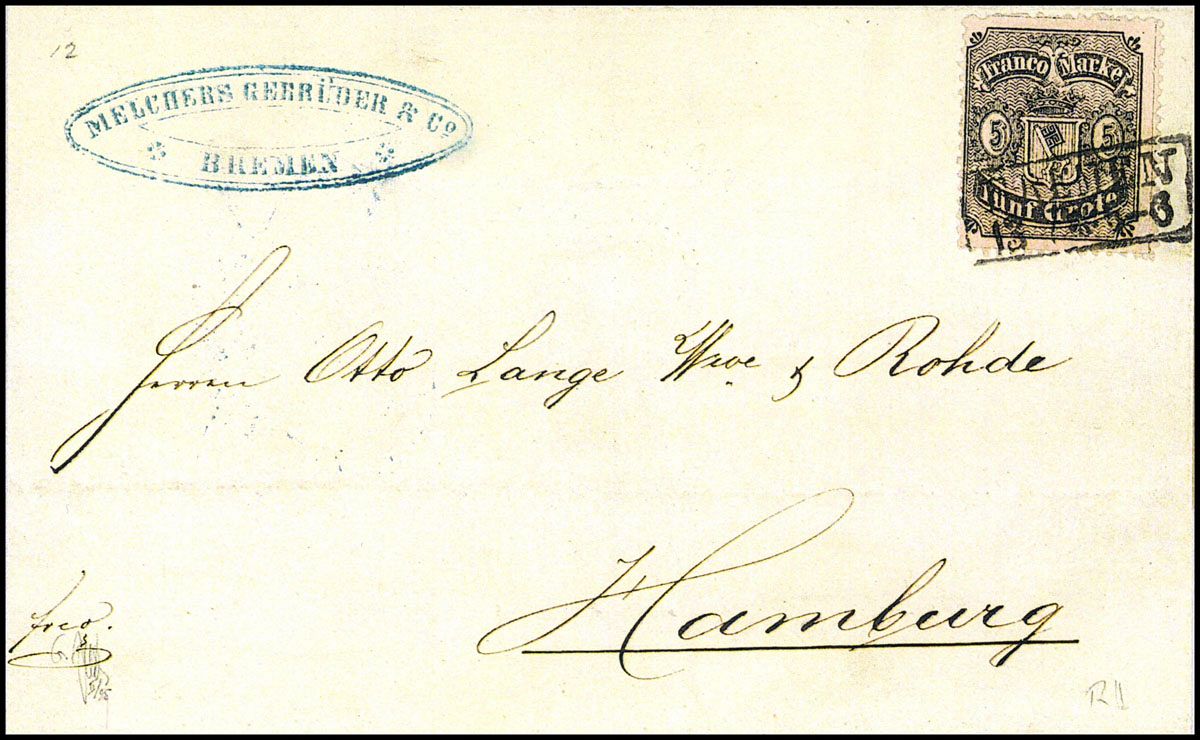 12
MELCHERS GEBRÜDER & Co
BREMEN
Franco Marke
5 5
Fünf Grote
13 6
Herren Otto Lange Wwe & Rohde
Hamburg
frco.